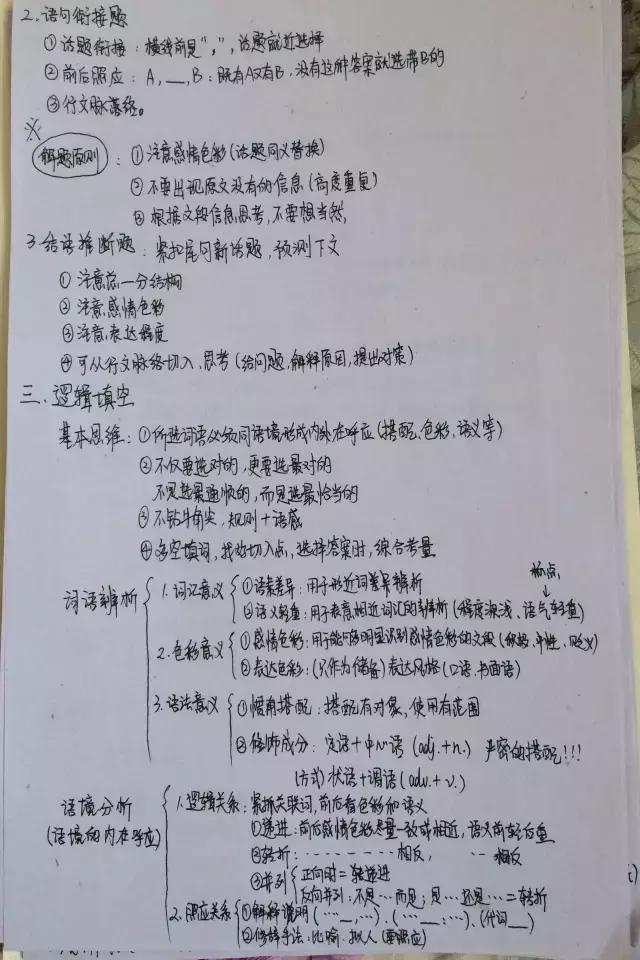 2.语句衔接题
①话题衔接:横线前是“,”,话题就近选择
②前后照应:A,__,B:既有A又有B,没有这种答案就选带B的
③行文脉络。
※
解题原则:①注意感情色彩(话题同义替换)
②不要出现原文没有的信息(高度重复)
③根据文段信息思考,不要想当然,
3.结语推断题:紧扣尾句新话题,预测下文
①注意总一分结构
②注意感情色彩
③注意表达程度
④可从行文脉络切入,思考(给问题,解释原因,提出对策)
三.逻辑填空
基本思维:①所选词语必须同语境形成内外在呼应(搭配、色彩、语义等)
②不仅要选对的,更要选最对的
不是选最通顺的,而是选最恰当的
③不钻牛角尖,规则+语感
④多空填词,找好切入点,选择答案时,综合考量
词语辨析
1.词汇意义
①语素差异:用于形近词差异辨析
②语义轻重:用于表意相近词汇的辨析(程度深浅、语气轻重)
2.色彩意义
①感情色彩:用于能够明显识别感情色彩的文段(积极、中性、贬义)
②表达色彩:(只作为储备)表达风格(口语、书面语)
3.语法意义
①惯用搭配:搭配有对象,使用有范围
②修饰成分:定语+中心语(adj.+n.) 严密的搭配!!!
(方式)状语+谓语(adv.+v.)
语境分析
(语境的内在呼应)
1.逻辑关系:紧抓关联词,前后看色彩和语义
①递进:前后感情色彩尽量一致或相近,语义前轻后重
②转折:------- 相反, -- 相反
③并列
正向时=弱递进
反向并列:不是…而是;是…还是…=转折
2.照应关系
①解释说明(…__,…).(…__:…).(代词__)
②修辞手法:比喻.拟人(要照应)